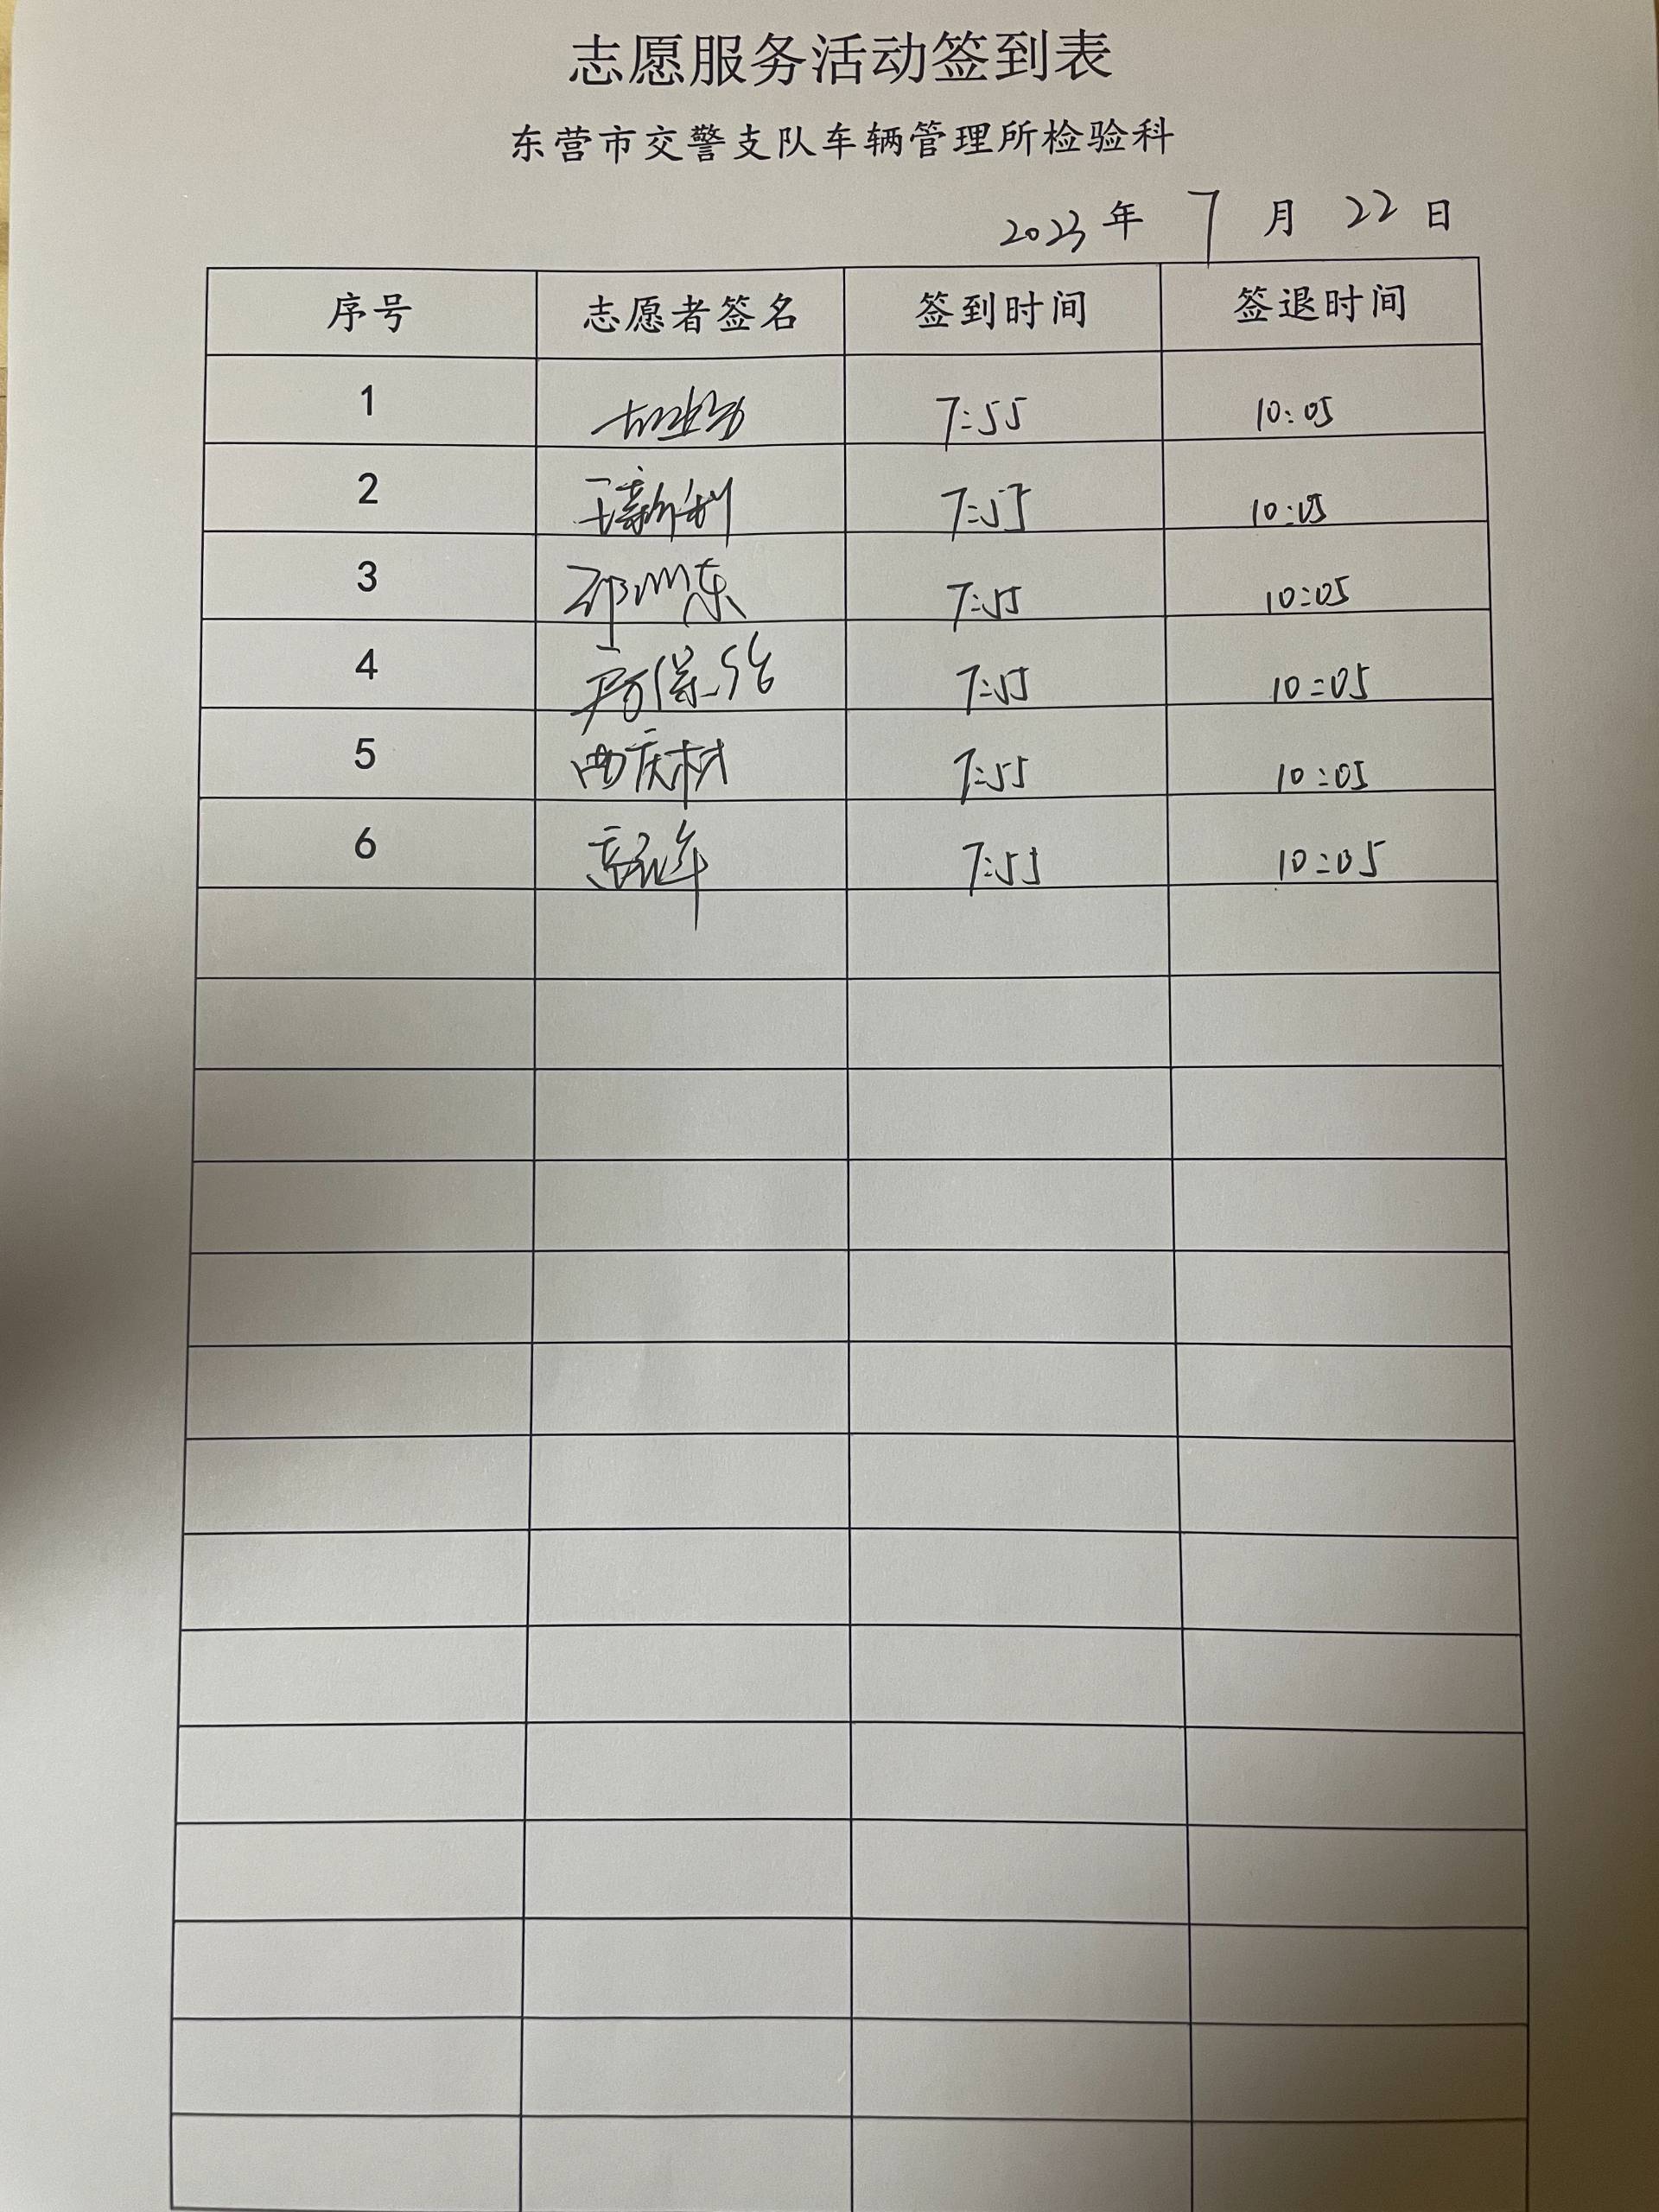 志愿服务活动签到表
东营市交警支队车辆管理所检验科
2023年 7月 22日
序号 志愿者签名 签到时间 签退时间
1 7:55 10:05
2 王新利 7:55 10:05
3 东 7:55 10:05
4 7:55 10:05
5 西庆村 7:55 10:05
6 7:55 10:05